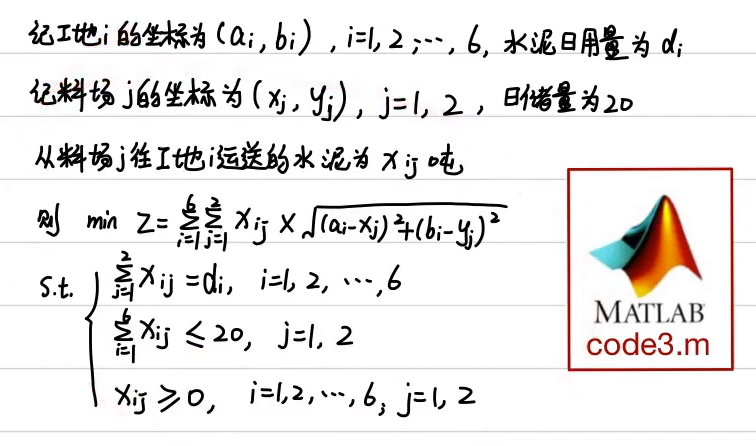 记工地i的坐标为(ai, bi), i=1, 2, ⋯, 6, 水泥日用量为 di
记料场j的坐标为(xj, yj), j=1, 2, 日储量为20
从料场j往工地i运送的水泥为 xij 吨
则 min Z=∑_{i=1}^{6}∑_{j=1}^{2} xij × √((ai-xj)²+(bi-yj)²)
s.t. { ∑_{j=1}^{2} xij = di, i=1, 2, ⋯, 6
∑_{i=1}^{6} xij ≤ 20, j=1, 2
xij ≥ 0, i=1,2,⋯,6; j=1, 2
MATLAB
code3.m